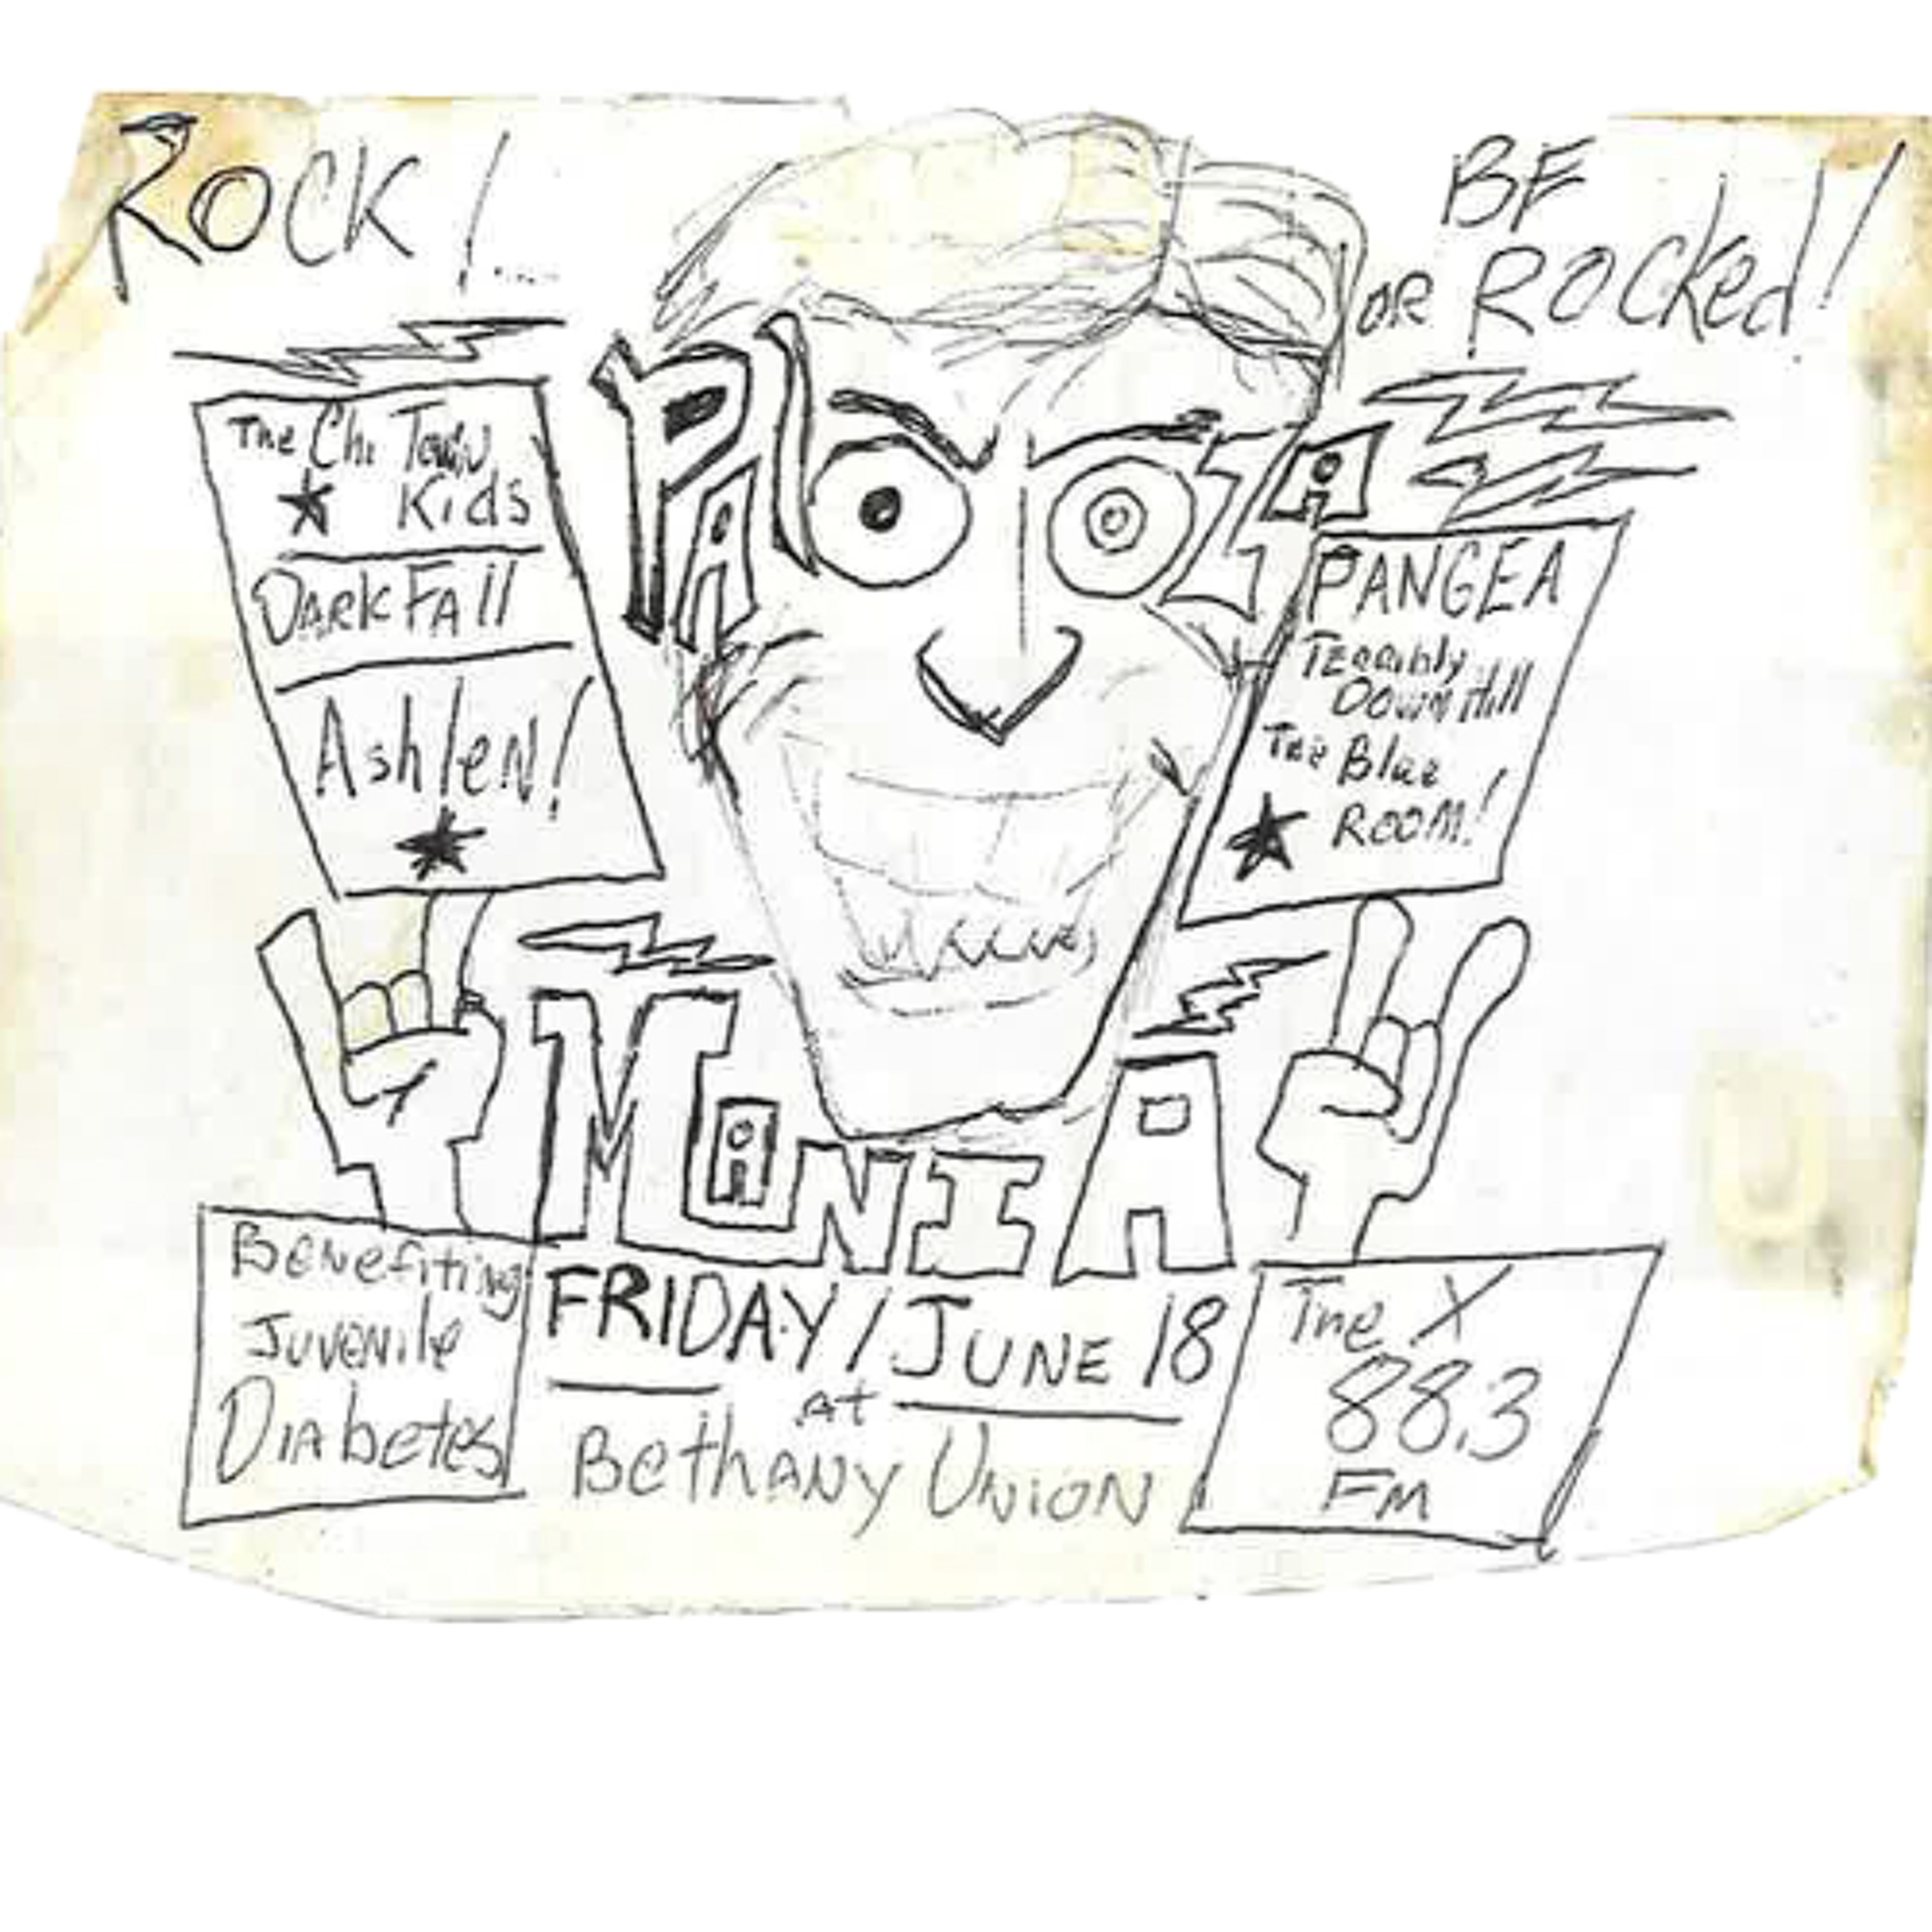 ROCK!....
OR BE ROCKed!
PAlooZA
The Chi Town
Kids
DARKFAll
AshleN!
PANGEA
TERRibly
DOWN Hill
The Blue
ROOM!
MANIA
BeNefitiNg
JuveNile
DIAbetes
FRIDAY / JUNE 18
At
BethANY UNiON
The X
88.3
FM